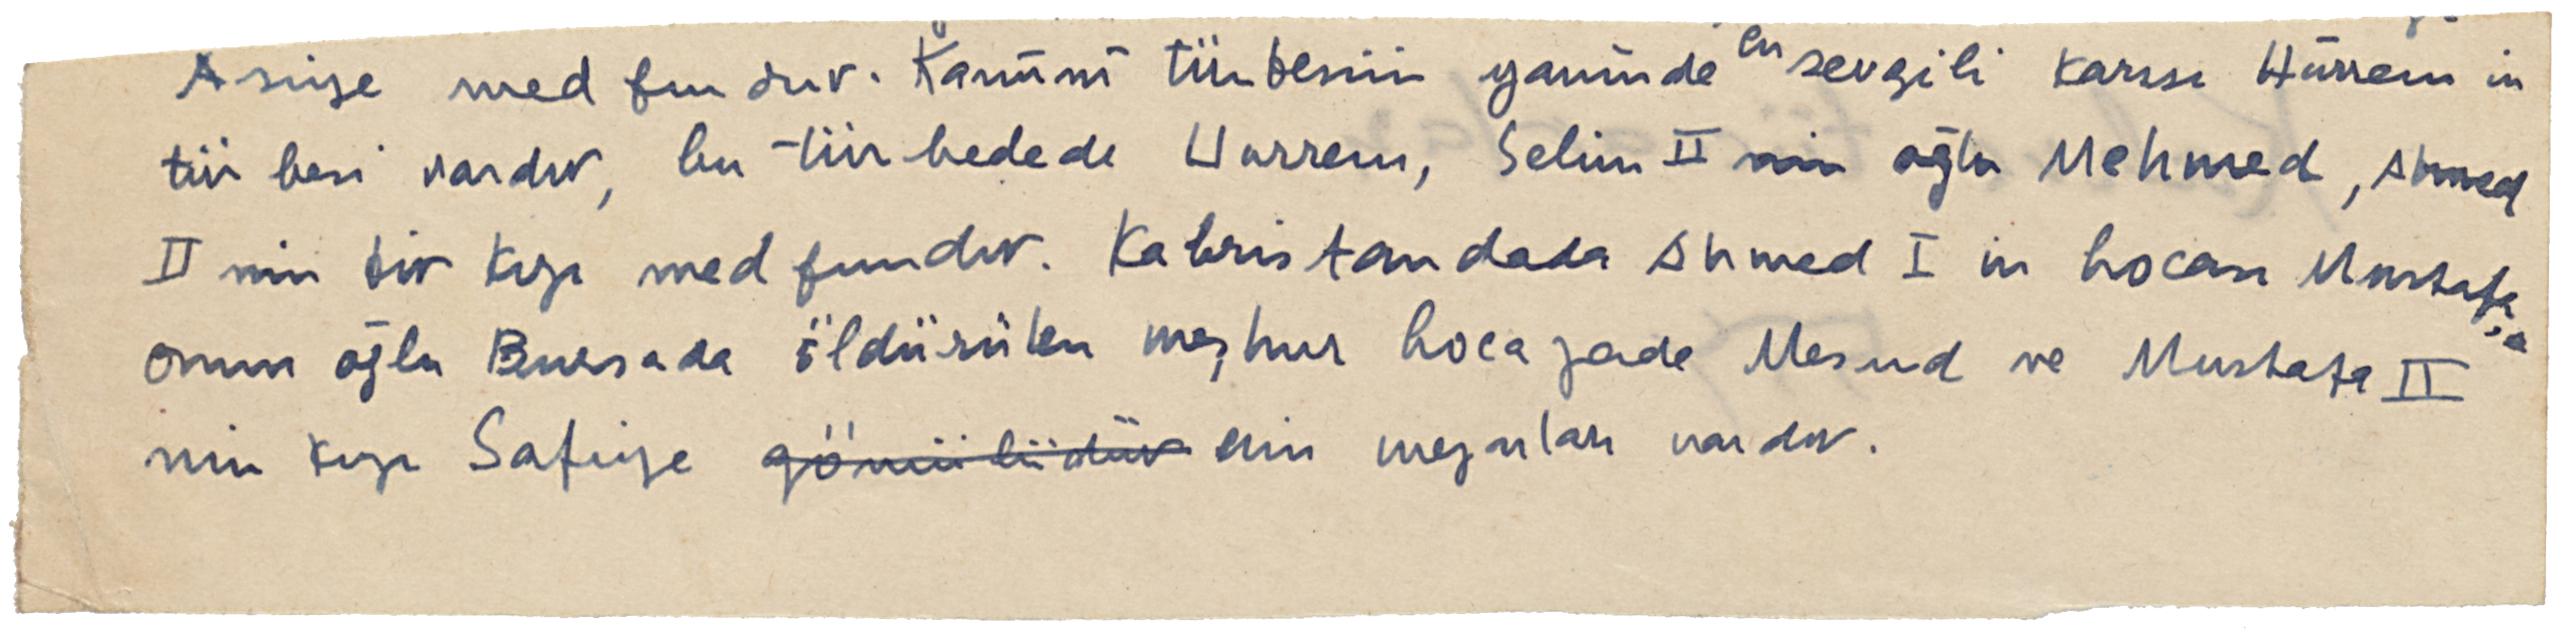 Asiye medfundur. Kanûnî türbesinin yanında en sevgili karısı Hürrem in
türbesi vardır, bu türbedede Hurrem, Selim II nin oğlu Mehmed, Ahmed
II nin bir kızı medfundır. Kabristandada Ahmed I in hocası Mustafa
onun oğlu Bursada öldürülen meşhur hocazade Mesud ve Mustafa II
nin kızı Safiye gömülüdür nin mezarları vardır.